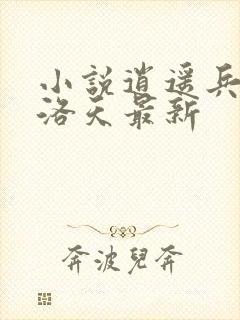 小說逍遥兵
洛天最新
奔波兒奔